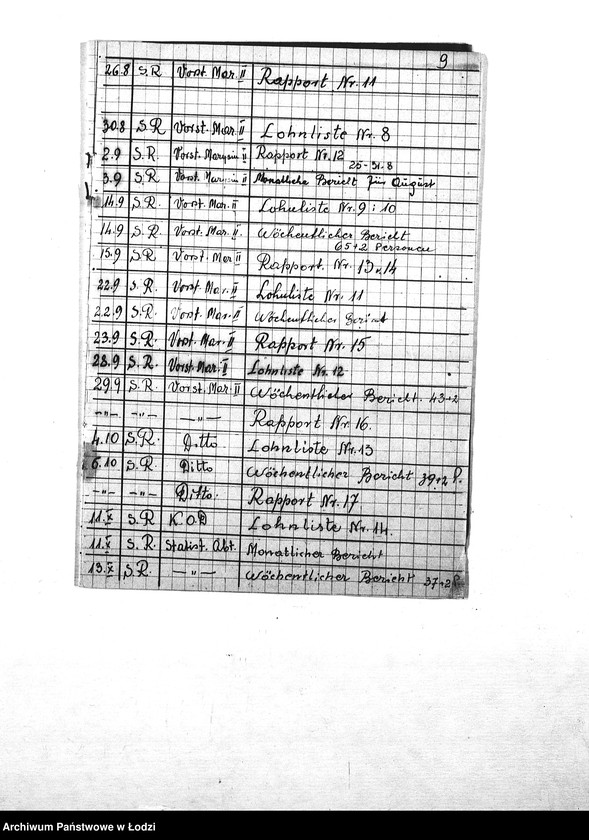 9
26.8 S.R Vorst. Mar. II Rapport Nr. 11
30.8 S.R Vorst. Mar. II Lohnliste Nr. 8
2.9 S.R. Vorst. Marysin II Rapport Nr. 12
25-31.8
3.9 S.R Vorst. Marysin II Monatliche Bericht für August
14.9 S.R. Vorst. Mar. II Lohnliste Nr. 9 i 10
14.9 S.R. Vorst. Mar. II. Wöchentlicher Bericht
65+2 Personen
15.9 S.R Vorst. Mar II Rapport. Nr. 13 u. 14
22.9 S.R. Vorst. Mar. II Lohnliste Nr. 11
22.9 S.R. Vorst. Mar. II Wöchentlicher Bericht
23.9 S.R. Vorst. Mar. II Rapport Nr. 15
28.9 S.R. Vorst. Mar. II Lohnliste Nr. 12
29.9 S.R. Vorst. Mar. II Wöchentlicher Bericht. 43+2
-"- -"- -"- Rapport Nr. 16.
4.10 S.R. Ditto Lohnliste Nr. 13
6.10 S.R. Ditto Wöchentlicher Bericht 39+2 P.
-"- -"- Ditto. Rapport Nr. 17
11.X S.R K.O.D Lohnliste Nr. 14.
11.X S.R. Statist. Abt. Monatlicher Bericht
13.X S.R -"- Wöchentlicher Bericht 37+2 P
Archiwum Państwowe w Łodzi